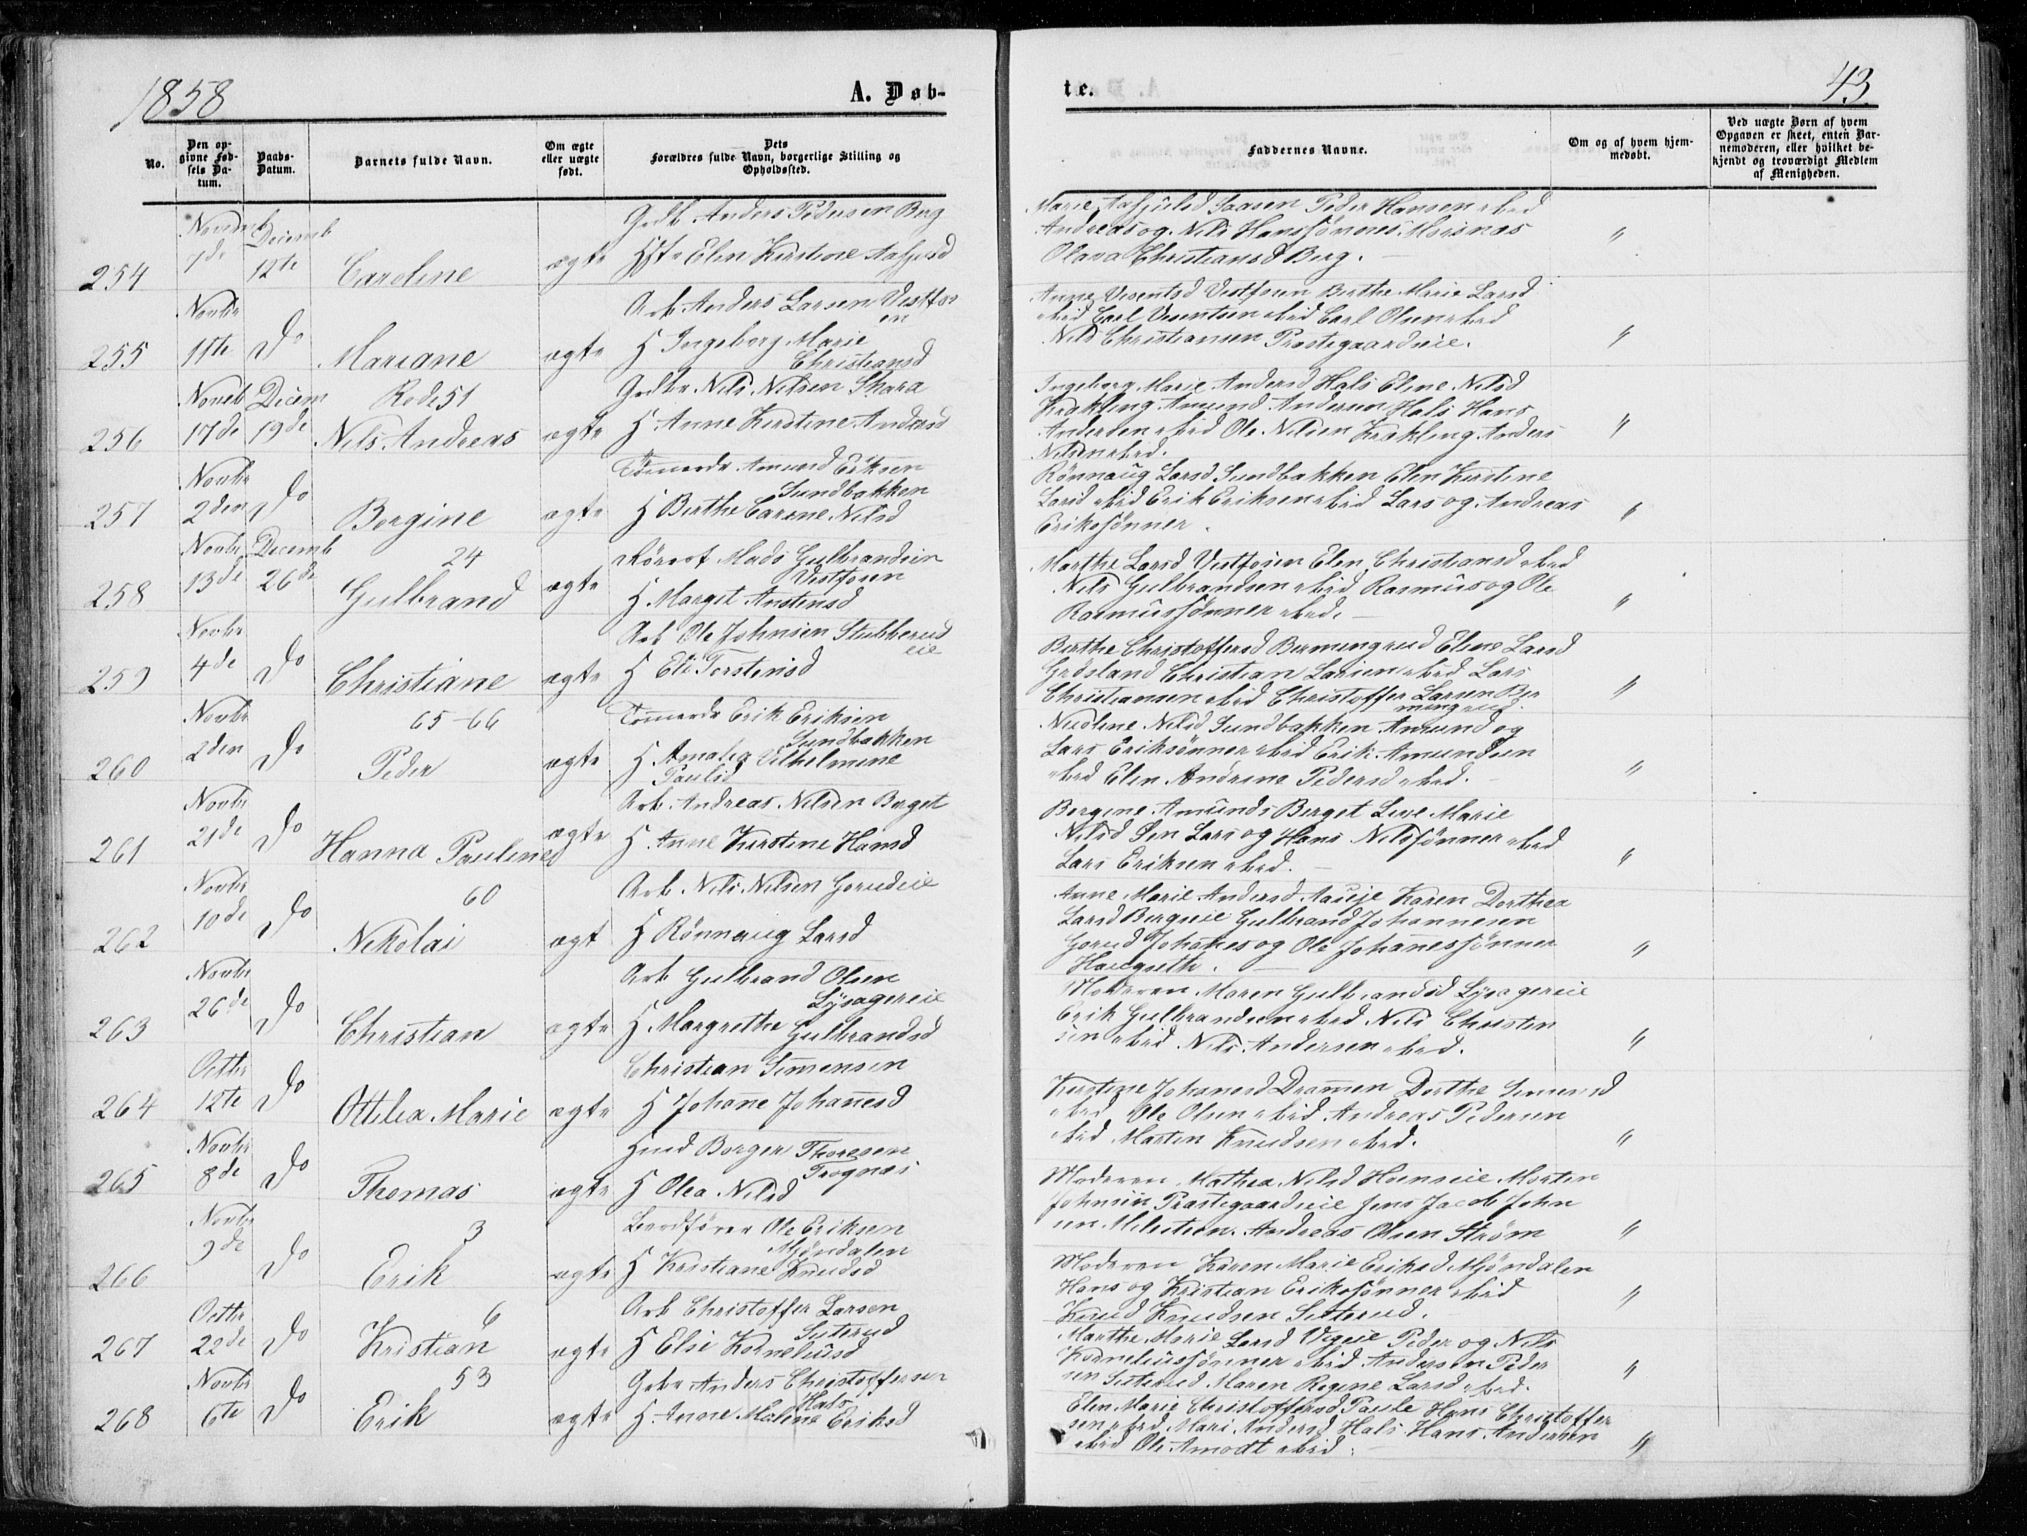 1858
A. Døb-
te.
43.
No.
Den op-
givne Fød-
sels Da-
tum.
Daabs-
Datum.
Barnets fulde Navn.
Om ægte
eller uægte
født.
Dets
Forældres fulde Navn, borgerlige Stilling og
Opholdssted.
Faddernes Navne.
Om og af hvem hjem-
medøbt.
Ved uægte Børn af hvem
Opgaven er skeet, enten Bar-
nemoderen, eller hvilket be-
kjendt og troværdigt Medlem
af Menigheden.
254
Decemb
12te
Caroline
ægte
Anders Pedersen Berg
Elen Kirstine
Marie Peder Hansen
Andreas og Nils Hanssønner
Olava Christiansd Berg.
"
255
Novbr
11te
Do
Mariane
ægte
Arb Anders Larsen Vestfos
en
H Ingeborg Marie
Christiansd
Anne Vestfosen Berthe Marie Larsd
Carl Olsen
Nils Christiansen Præstegaardseie.
"
256
Novbr
17de
Decem
19de
51
Nils Andreas
ægte
Nils Nilsen Skara
H Anne Kirstine Andersd
Ingeborg Marie Andersd Hals Eline Nilsd
Krækling Amund Andersen Hals Hans
Andersen Ole Nilsen Krækling Anders
Nilsen
"
257
Novbr
2den
Do
Bergine
ægte
Amund Eriksen
Sundbakken
H Berthe Carine Nilsd
Rønnaug Larsd Sundbakken Elen Kirstine
Larsd Erik Eriksen Lars og Andreas
Erikssønner.
"
258
Novbr
13de
Decemb
26de
24
Gulbrand
ægte
Mads Gulbrandsen
Vestfosen
H Margit Anstensd
Marthe Larsd Vestfosen Elen Christiansd
Nils Gulbrandsen Rasmus og Ole
Rasmussønner
"
259
Novbr
4de
Do
Christiane
ægte
Arb Ole Johnsen Stubberud
eie
H Eli Torstensd
Berthe Christoffersd Bermingrud Eline Larsd
Grøsland Christian Larsen Lars
Christiansen Christoffer Larsen Ber
mingrud.
"
260
Novbr
2den
Do
65-66
Peder
ægte
Erik Eriksen
Sundbakken
H Amalia Vilhelmine
Paulsd
Nilsd Sundbakken Amund og
Lars Erikssønner Erik Amundsen
Elen Andrine Pedersd
"
261
Novbr
21de
Do
Hanna Pauline
ægte
Arb. Andreas Nilsen Berget
H Anne Kirstine Hansd
Bergine Amunds Berget Lise Marie
Nilsd Lars og Hans Nilssønner
Lars Eriksen
"
262
Novbr
10de
Do
60
Nikolai
ægt
Arb Nils Nilsen Gorudeie
H Rønnaug Larsd
Anne Marie Andersd Karen Dorthea
Larsd Bergseie Gulbrand Johannesen
Gorud Johanes og Ole Johanessønner
Haugseth.
"
263
Novbr
26de
Do
Christian
ægte
Arb Gulbrand Olsen
Lysagereie
H Margrethe Gulbrandsd
Moderen Maren Gulbrandsd Lysagereie
Erik Gulbrandsen Nils Christen
sen Nils Andersen
"
264
Octbr
12te
Do
Ottilea Marie
ægte
Christian Simensen
H Johane Johanesd
Kirstine Johanesd Dramen Dorthe
Ole Olsen Andreas Pedersen
Martin Knudsen
"
265
Novbr
8de
Do
Thomas
ægte
Borger Thoresen
H Olea Nilsd
Moderen Mathea Nilsd Hoenseie Morten
Johnsen Præstegaardseie Jens Jacob John
sen Andreas Olsen Strøm
"
266
Novbr
9de
Do
3
Erik
ægte
Ole Eriksen
Mjøndalen
H Kristiane Knudsd
Moderen Karen Marie Eriksd Mjøndalen
Hans og Kristian Erikssønner
Knud Knudsen Seterud.
"
267
Octbr
22de
Do
6
Kristian
ægte
Arb Christoffer Larsen
Seterud
H Elsi Korneliusd
Marthe Marie Larsd Peder og Nils
Korneliussønner Andersen Peder
sen Seterud Maren Regine Larsd
"
268
Novbr
6te
Do
53
Erik
ægte
Anders Christoffersen
Hals
H Anne Malene Eriksd
Elen Marie Christoffersd Hans Christoffer
sen Mari Andersd Hals Hans Andersen
Ole Amodt
"